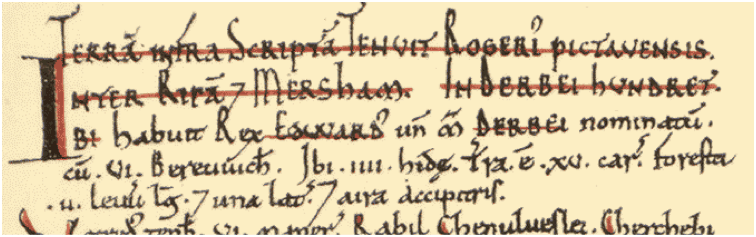 TERRĀ INFRA SCRIPTĀ TENUIT ROGERI' PICTAVENSIS.
INTER RIPĀ ⁊ MERSHAM. IN DERBEI HUNDRET.
IBI habuit Rex EDWARD' un̄ m̄ DERBEI nominatū.
cū .vi. Bereuuich̄. Ibi .iiii. hidę. T'ra .ē .xv. car'. Foresta
.ii. leuu' lḡ. ⁊ una lat'. ⁊ aira accipitris.
tenb̄. .vi. maner'. Rabil Chenulueslei. Cherchebi